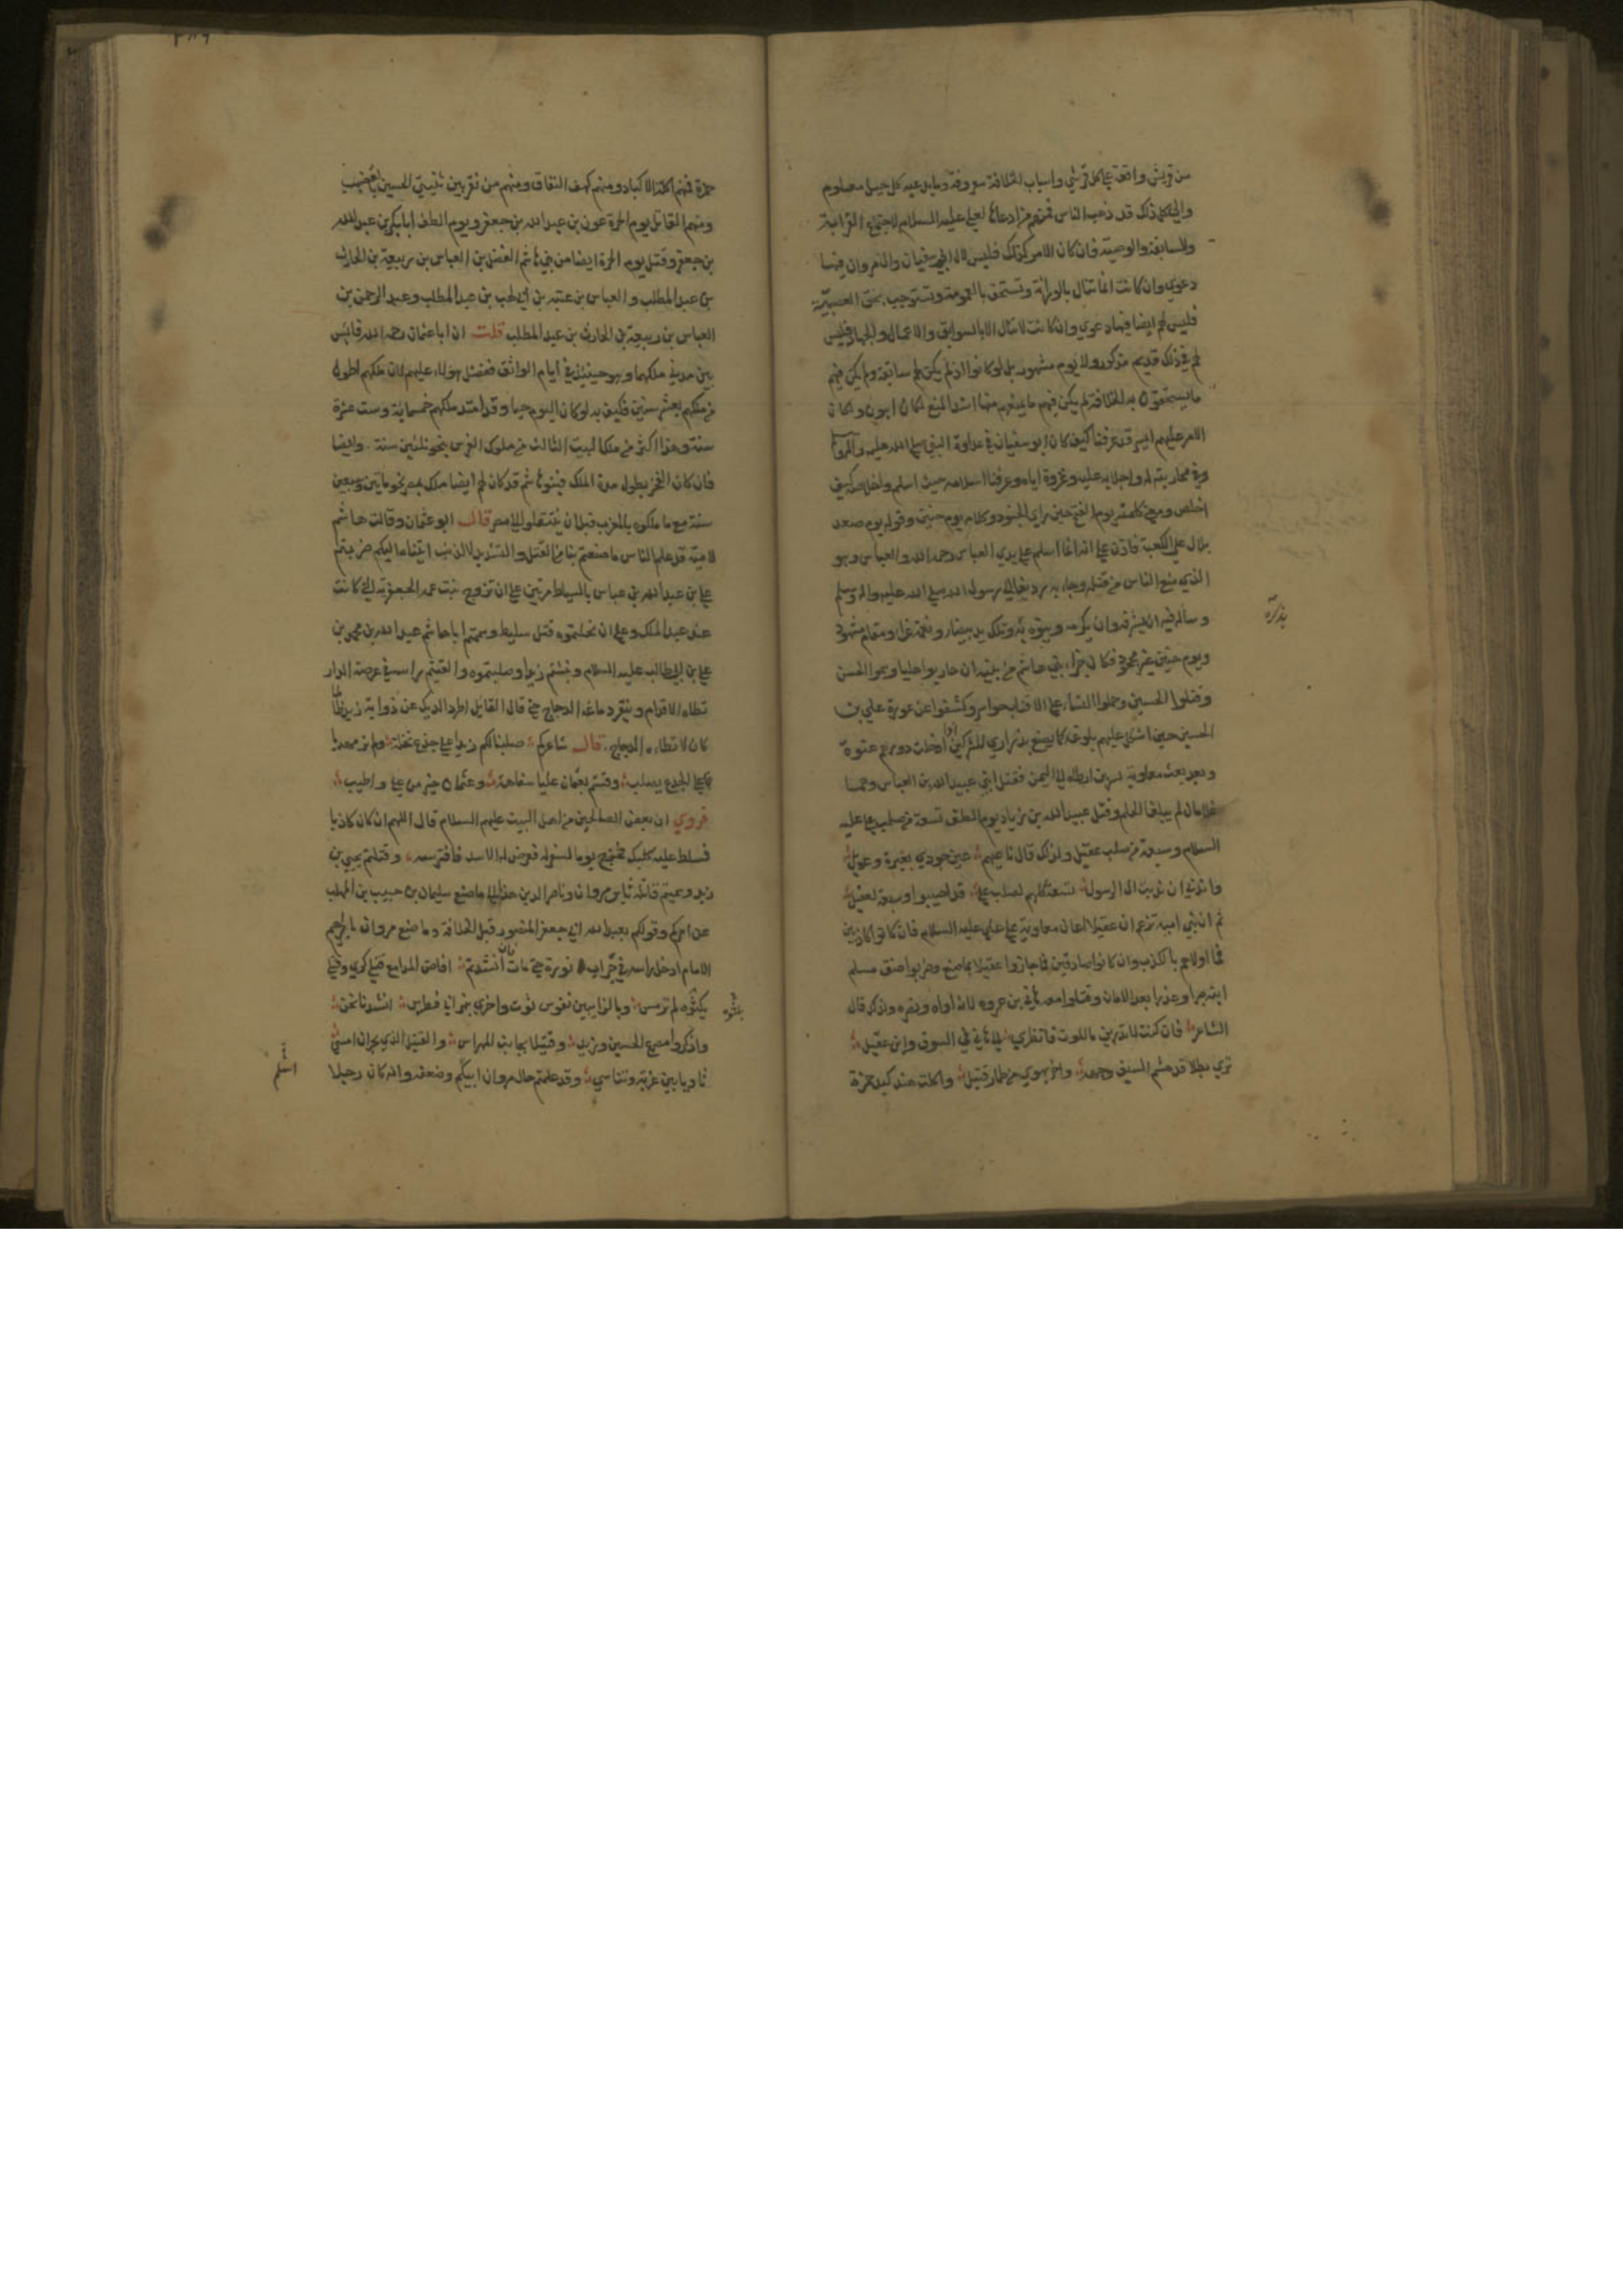 من قريش واقعة على كل قرشي واسباب الخلافة معروفة وما يدعيه كل جيل معلوم
والى كل ذلك قد ذهب الناس فمنهم من ادعاها لعلي عليه السلام لاجتماع القرابة
والسابقة والوصية فان كان الامر كذلك فليس لال ابي سفيان وال مروان فيها
دعوى وان كانت انما تنال بالوراثة وتستحق بالعمومة وتستوجب بحق العصبية
فليس لهم ايضا فيها دعوى وان كانت لا تنال الا بالسوابق والاعمال والجهاد فليس
لهم في ذلك قديم مذكور ولا يوم مشهور بل لو كانوا اذ لم يكن لهم سابقة ولم يكن فيهم
ما يستحقون به الخلافة لم يكن فيهم ما يمنعهم منها اشد المنع لكان اهون ولكان
الامر عليهم ايسر قد عرفنا كيف كان ابو سفيان في عداوة النبي صلى الله عليه واله وسلم
وفي محاربته له واجلابه عليه وغزوة اياه وعرفنا اسلامه حيث اسلم واخلاصه كيف
اخلص ومعنى كلمته يوم الفتح حين راى الجنود وكلامه يوم حنين وقوله يوم صعد
بلال على الكعبة فاذن على انه انما اسلم على يدي العباس رحمه الله والعباس هو
الذي منع الناس من قتله وجاء به رديفا الى رسول الله صلى الله عليه واله وسلم
وساله فيه ان يشرفه وان يكرمه وينوه به وتلك يد بيضاء ونعمة غراء ومقام مشهود
ويوم حنين غير مجحود فكان جزاء بني هاشم من بنيه ان حاربوا عليا وسموا الحسن
وقتلوا الحسين وحملوا النساء على الاقتاب حواسر وكشفوا عن عورة علي بن
الحسين حين اشكل عليهم بلوغه كما يصنع بذراري المشركين اذا دخلت دورهم عنوة
وبعد بعث معاوية بسر بن ارطاه الى اليمن فقتل ابني عبيد الله بن العباس وهما
غلامان لم يبلغا الحلم وقتل عبيد الله بن زياد يوم الطف تسعة من صلب علي عليه
السلام وسبعة من صلب عقيل ولذلك قال ناعيهم عين جودي بعبرة وعويل
واندبي ان ندبت ال الرسول تسعة كلهم لصلب علي قد اصيبوا وسبعة لعقيل
ثم ان بني امية تزعم ان عقيلا اعان معاوية على علي عليه السلام فان كانوا كاذبين
فما اولاهم بالكذب وان كانوا صادقين فما جازوا عقيلا بما صنع وضربوا عنق مسلم
ابنه صبرا وغدرا بعد الامان وقتلوا معه هاني بن عروه لانه اواه ونصره ولذلك قال
الشاعر فان كنت لا تدرين ما الموت فانظري الى هاني في السوق وابن عقيل
تري بطلا قد هشم السيف وجهه واخر يهوي من طمار قتيل واكلت هند كبد حمزة
بذرته
حمزة فمنهم اكلة الاكباد ومنهم كهف النفاق ومنهم من نقر بين ثنيتي الحسين بالقضيب
ومنهم القاتل يوم الحرة عون بن عبد الله بن جعفر ويوم الطف ابا بكر بن عبد الله
بن جعفر وقتل يوم الحرة ايضا من بني هاشم الفضل بن العباس بن ربيعة بن الحارث
بن عبد المطلب والعباس بن عتبه بن ابي لهب بن عبد المطلب وعبد الرحمن بن
العباس بن ربيعة بن الحارث بن عبد المطلب قلت ان ابا عثمان رحمه الله قايس
بين مدتي ملكهما وهو حينئذ في ايام الواثق ففضل هؤلاء عليهم لان ملكهم اطول
من ملكهم بعشر سنين فكيف به لو كان اليوم حيا وقد امتد ملكهم خمسماية وست عشرة
سنة وهذا اكثر من ملك البيت الثالث من ملوك الفرس بنحو ثلثين سنة وايضا
فان كان الفخر بطول مدة الملك فبنو هاشم قد كان لهم ايضا ملك بمصر نحو مايتين وسبعين
سنة مع ما ملكوه بالمغرب قبل ان ينتقلوا الى مصر قال ابو عثمان وقالت هاشم
لامية قد علم الناس ما صنعتم بنا من القتل والتشريد لا لذنب اتيناه اليكم ضربتم
علي بن عبد الله بن عباس بالسياط مرتين على ان تزوج بنت عمه الجعفرية التي كانت
عند عبد الملك وعلى ان نحلتموه قتل سليط وسممتم ابا هاشم عبد الله بن محمد بن
علي بن ابي طالب عليه السلام ونبشتم زيدا وصلبتموه والقيتم راسه في عرصة الدار
تطاه الاقدام وينقر دماغه الدجاج حتى قال القايل اطرد الديك عن ذوابة زيد طالما
كان لا تطاه الدجاج قال شاعركم صلبنا لكم زيدا على جذع نخلة ولم نر مهديا
على الجذع يصلب وقستم بعثمان عليا سفاهة وعثمان خير من علي واطيب
فروي ان بعض الصالحين من اهل البيت عليهم السلام قال اللهم ان كان كاذبا
فسلط عليه كلبك فخرج يوما لسفر له فعرض له الاسد فافترسه وقتلتم يحيى بن
زيد وسميتم قاتله ثاير مروان وناصر الدين هذا الى ما صنع سليمان بن حبيب بن المهلب
عن امركم وقولكم بعبد الله ابي جعفر المنصور قبل الخلافة وما صنع مروان بابراهيم
الامام ادخل راسه في جراب نورة حتى مات فان انشدتم افاض المدامع قتلى كدي وقتلى
بكثوه لم ترمس وبالزابيين نفوس ثوت واخرى بنهر ابي فطرس انشدنا نحن
واذكروا مصرع الحسين وزيد وقتيلا بجانب المهراس والقتيل الذي بحران امسى
ثاويا بين غربة وتناسي وقد علمتم حال مروان ابيكم وضعفه وانه كان رجلا
بكثوه